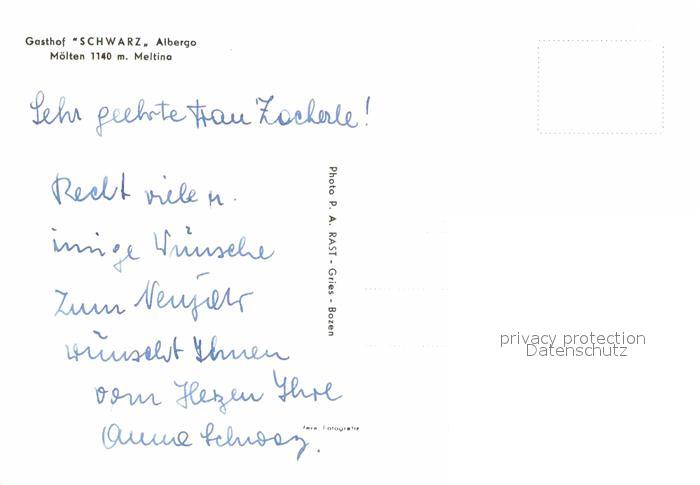 Gasthof "SCHWARZ„ Albergo
Mölten 1140 m. Meltina
Sehr geehrte Frau Zacherle!
Recht viele u.
innige Wünsche
zum Neujahr
wünscht Ihnen
vom Herzen Ihre
Anna Schwarz.
Photo P. A. RAST - Gries - Bozen
Fotografie
privacy protection
Datenschutz